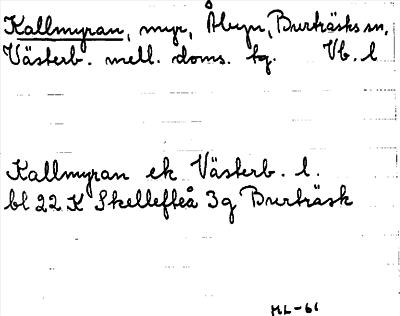 Kallmyran, myr, Åbyn, Burträsks sn,
Västerb. mell. doms. tg. Vb. l
Kallmyran ek Västerb. l.
bl 22 K Skellefteå 3g Burträsk
ML-61